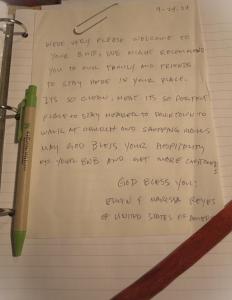 9-24-22
WE'RE VERY PLEASE WELCOME TO
YOUR BNB, WE MIGHT RECOMMEND
YOU TO OUR FAMILY AND FRIENDS
TO STAY HERE IN YOUR PLACE.
ITS SO CLEAN, NEAT. ITS SO PERFECT
PLACE TO STAY NEARER TO DOWNTOWN TO
WALK AT CHURCH AND SHOPPING
MAY GOD BLESS YOUR HOSPITALITY
YOUR BNB AND GET MORE CUSTOMERS
GOD BLESS YOU!
EDWIN & REYES
OF UNITED STATES OF AMERICA